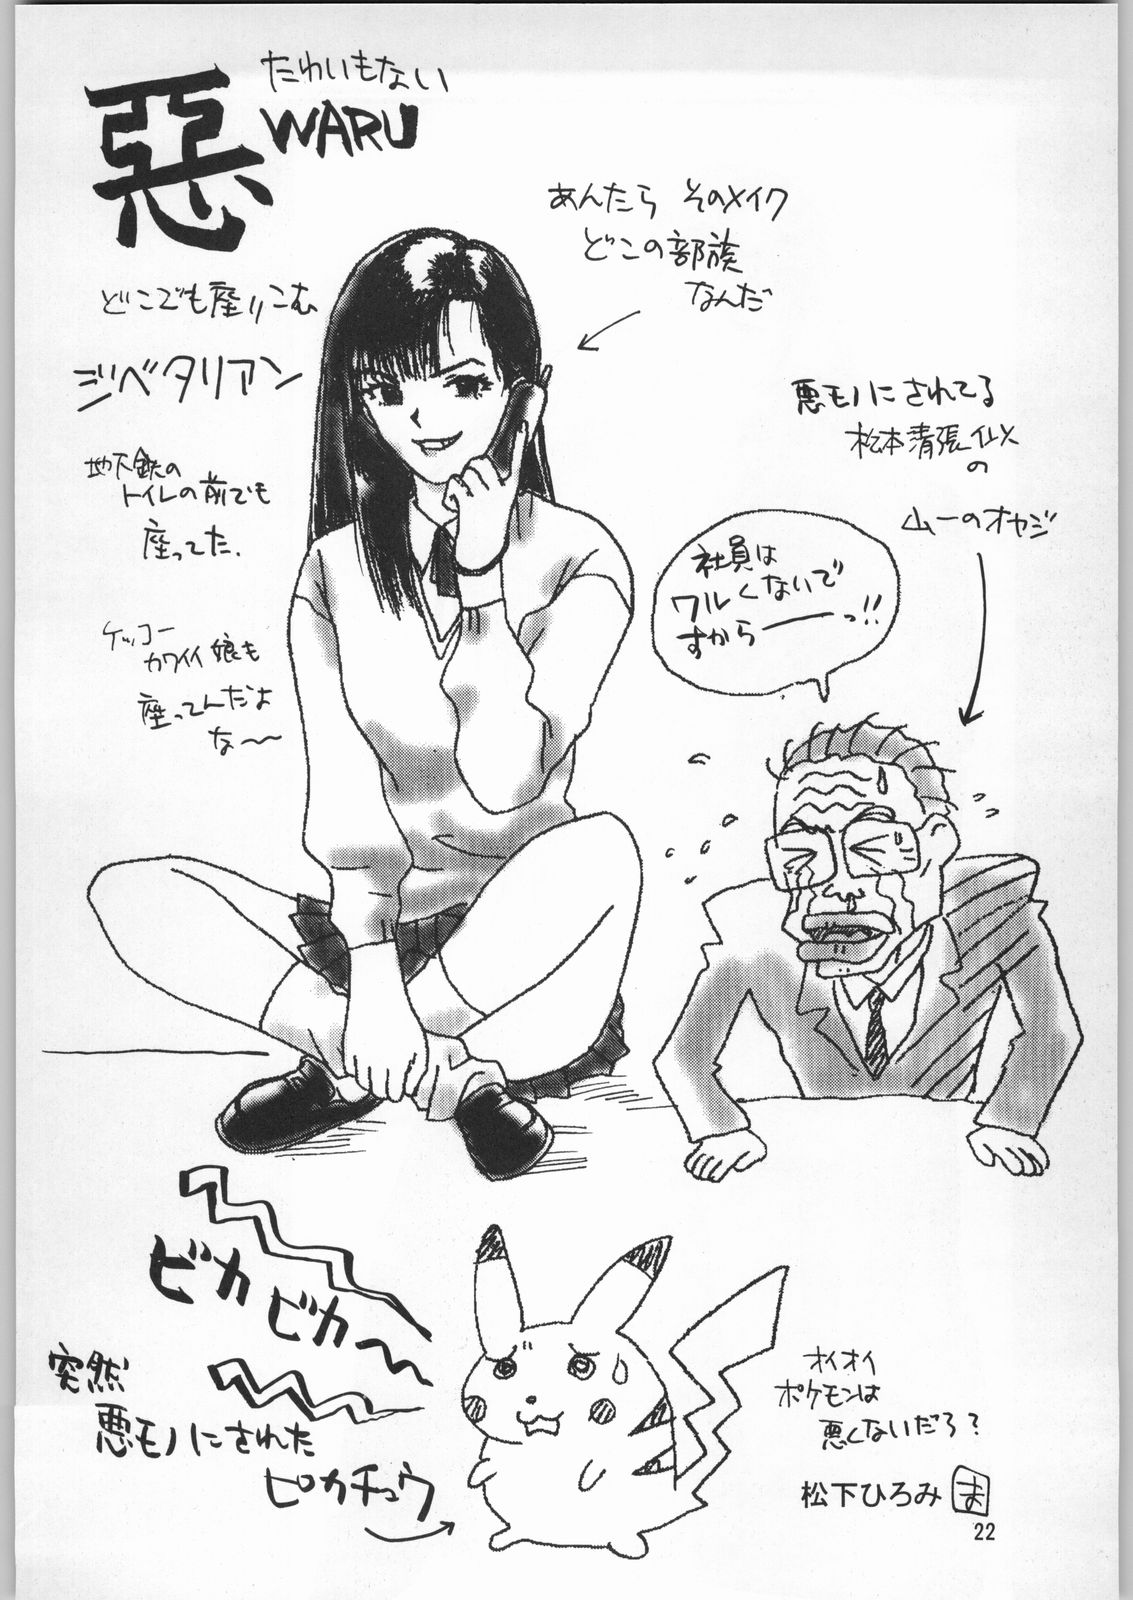 惡
たわいもない
WARU
あんたら そのメイク
どこの部族
なんだ
どこでも座りこむ
ジベタリアン
地下鉄の
トイレの前でも
座ってた.
ケッコー
カワイイ娘も
座ってんだよ
な〜〜
悪モノにされてる
松本清張似
の
山一のオヤジ
社員は
ワルくないで
すから――っ!!
ピカ
ピカ〜〜
突然
悪モノにされた
ピカチュウ
オイオイ
ポケモンは
悪くないだろ?
松下ひろみ
ま
22